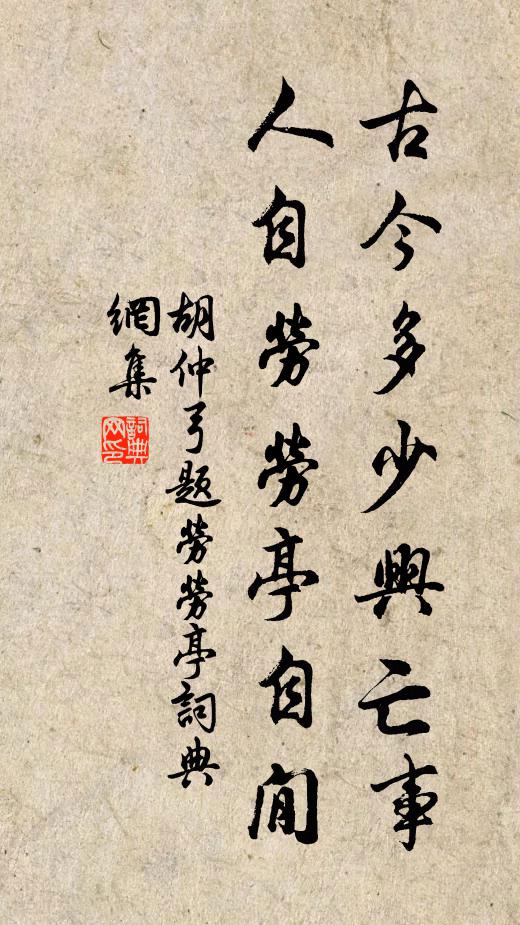 古今多少興亡事
人自勞勞亭自閒
胡仲弓題勞勞亭詞典
網集
詞典网印